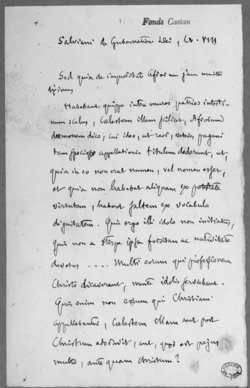 Fonds Castan
Salviani de Gubernatione Dei, Lib. VIII
Sed quia de impuritate Afrorum jam multa
diximus
Habebant quippe intra muros patrios intestinum
scelus, Cælestem illam scilicet, Afrorum
dæmonem dico, cui ideo, ut reor, veteres pagani
tam speciosæ appellationis titulum dederunt, ut,
quia in eo non erat numen, vel nomen esset,
et quia non habebat aliquam ex potestate
virtutem, haberet saltem ex vocabulo
dignitatem. Quis ergo illi idolo non initiatus,
quis non a stirpe ipsa forsitan ac nativitate
devotus .... Multi eorum qui professionem
Christo dicaverant, mente idolis serviebant.
Quis enim non eorum qui Christiani
appellabantur, Cælestem illam aut post
Christum adoravit, aut, quod est pejus
multo, ante quam Christum?